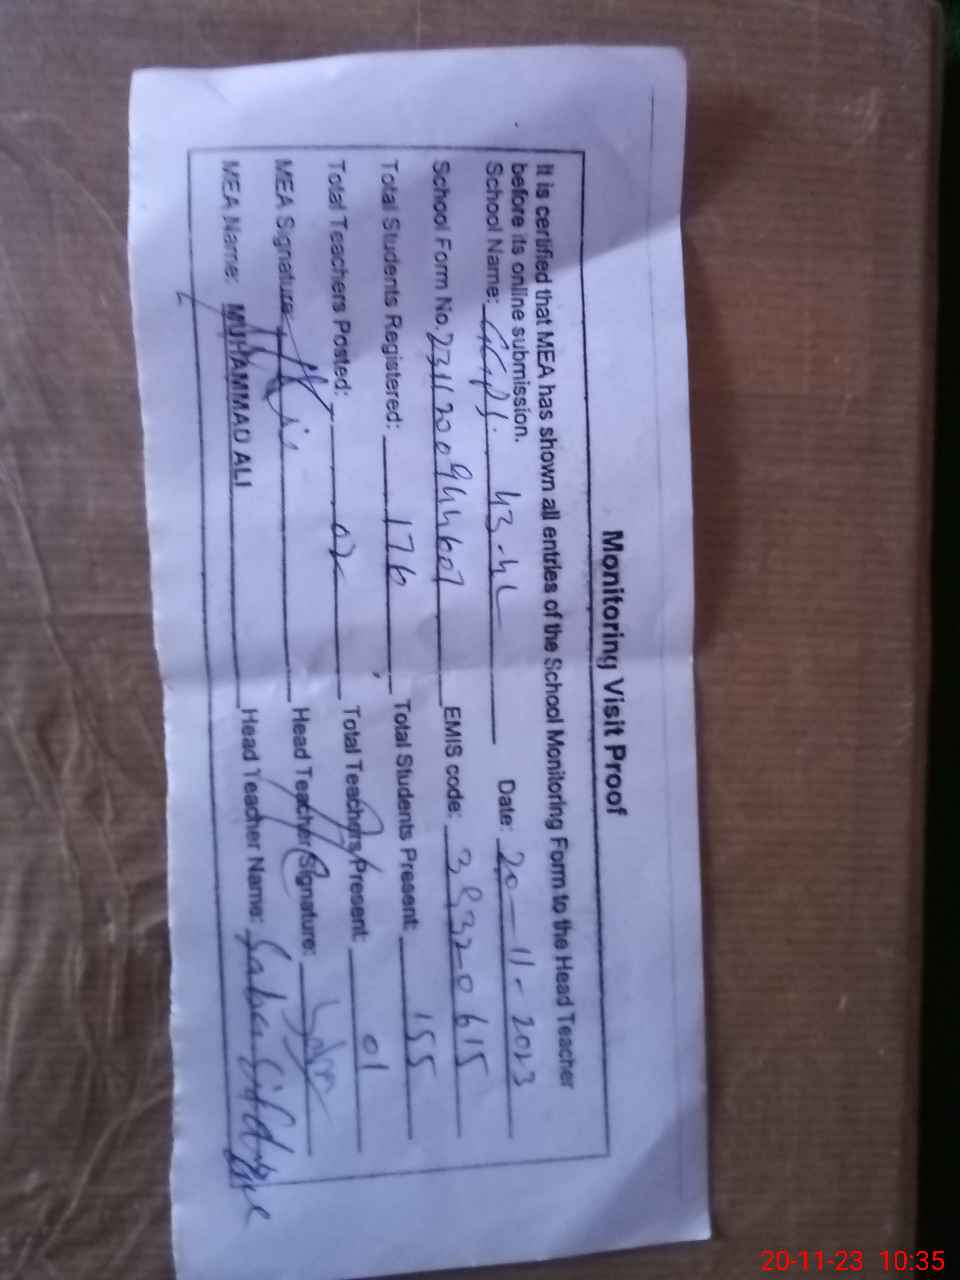 Monitoring Visit Proof
It is certified that MEA has shown all entries of the School Monitoring Form to the Head Teacher
before its online submission.
School Name: 43-4L Date: 20-11-2023
School Form No. EMIS code:
Total Students Registered: 176 Total Students Present: 155
Total Teachers Posted: 02 Total Teachers Present: 01
MEA Signature: Head Teacher Signature:
MEA Name: MUHAMMAD ALI Head Teacher Name:
20-11-23 10:35